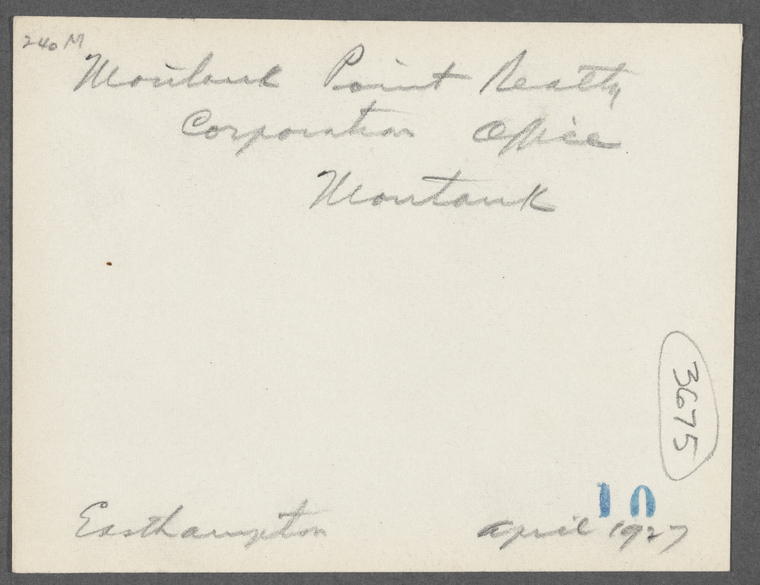 240 M
Montauk Point Realty
Corporation Office
Montauk
3675
10
Easthampton April 1927